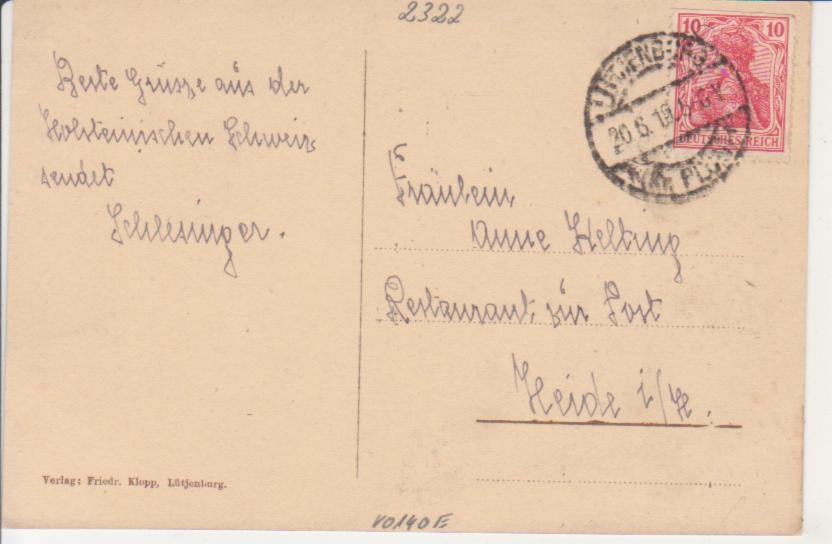 2322
Beste Grüsze aus der
Holsteinischen Schweiz
sendet
Schlesinger.
10 10
DEUTSCHES REICH
LÜTJENBURG
20.6.19.
Fräulein
Anne Helting
Restaurant zur Post
Heide i/H.
Verlag: Friedr. Klopp, Lütjenburg.